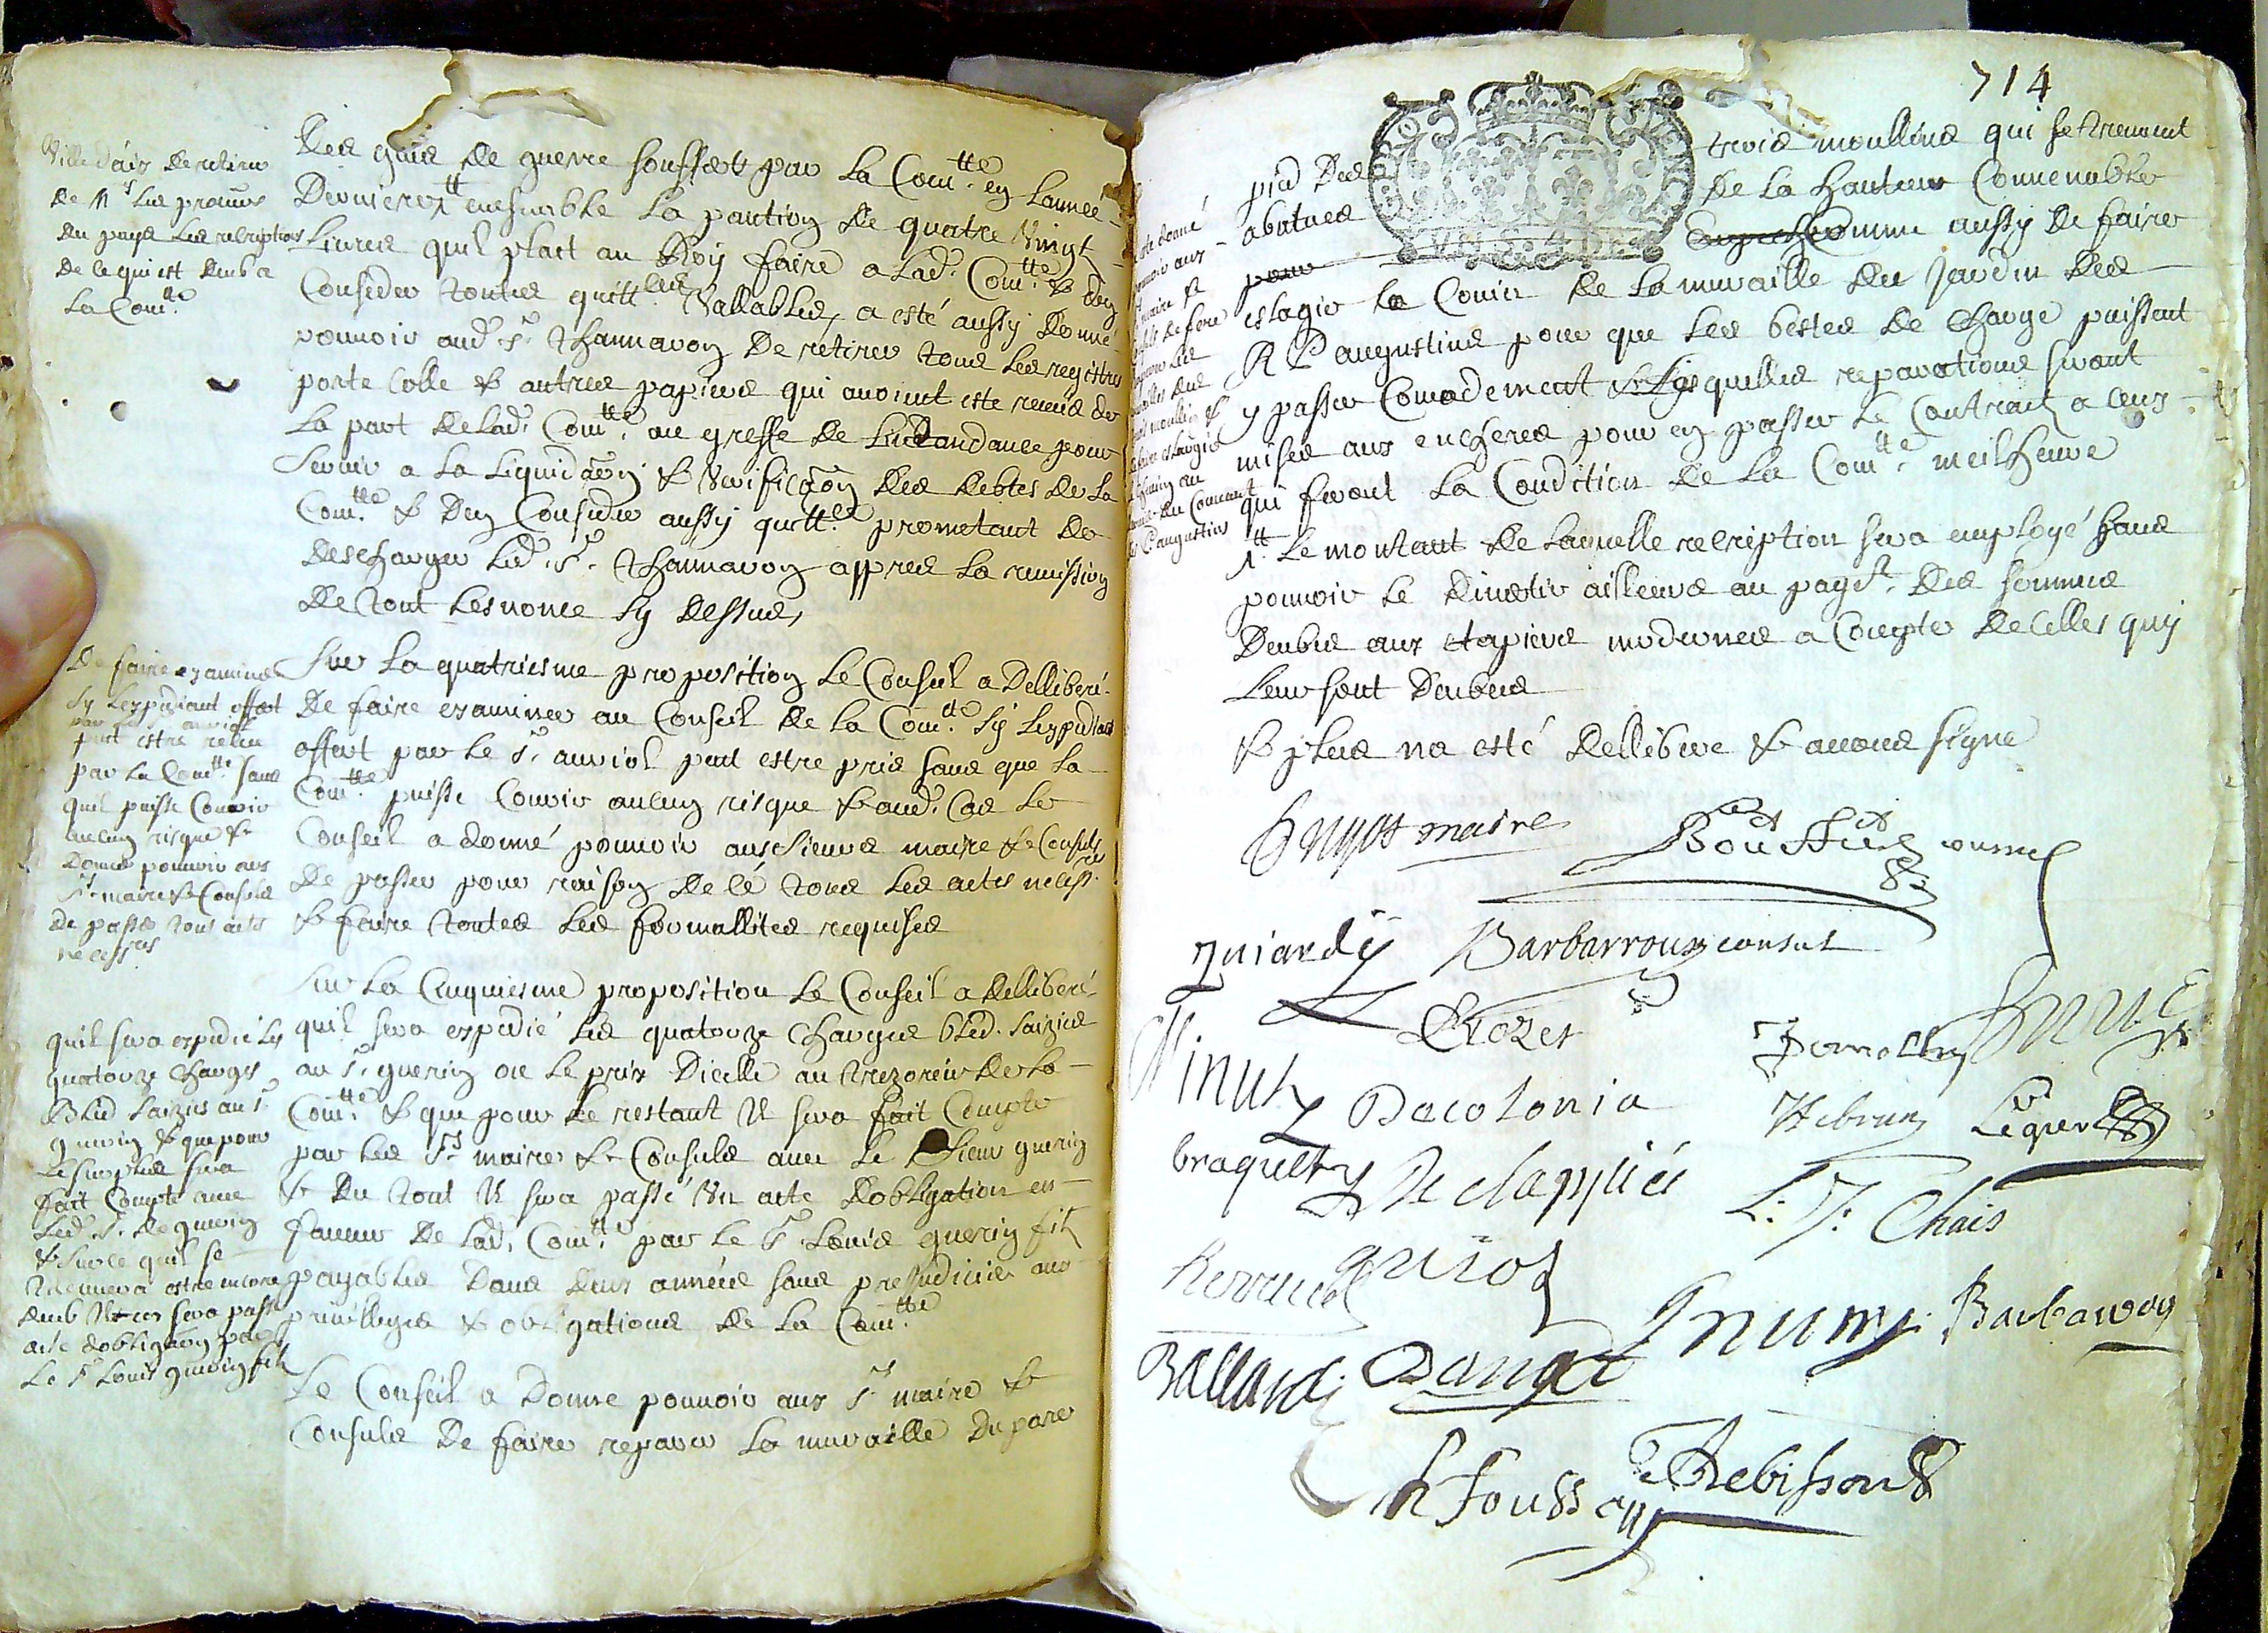 Ville daix de retirer
de Mrs les procurs
du pays les rescriptions
de ce qui est deub a
la Comtte
des gens de guerre souffert par la Comtte en lannee
derniere et ensemble la portion de quatre vingt
livres quil plait au Roy faire a lad. Comtte & den
conceder toutes quittces vallables, a esté aussy donné
pouvoir aud. Sr Thannaron de retirer tous les registres
porte colle & autres papiers qui avoint este remis de
la part de lad. Comtte au greffe de Lintandance pour
servir a la liquidaõn & verificaõn des debtes de la
Comtte & den conceder aussy quittce prometant de
descharger led. Sr Thannaron appres la remission
de tout lesnonce sy dessus,
De faire examiner
sy lexpediant offert
par le Sr auriol
peut estre reçeu
par la Comtte sans
quil puisse courir
aucung risque &
donné pouvoir aux
Srs maire & Consuls
de passer tous actes
necessres
Sur la quatriesme proposition le Conseil a delliberé
de faire examiner au Conseil de la Comtte sy lexpediant
offert par le Sr auriol peut estre pris sans que la
Comtte puisse courir aucung risque & aud. cas le
Conseil a donné pouvoir aux sieurs maire & Consuls
de passer pour raison de cé tous les actes necessres
& faire toutes les formallites requises
Quil sera expedié les
quatorze charges
bled saizies au Sr
guerin & que pour
le surplus sera
fait compte avec
led. Sr de guerin
& sur ce quil se
treuvera estre encore
deub sera passé
acte dobligaõn par
le Sr Louis guerin fils
Sur la cinquiesme proposition le Conseil a delliberé
quil sera expedié les quatorze charges bled saizies
au Sr guerin ou le prix dicelle au trezorier de la
Comtte & que pour le restant il sera fait compte
par les Srs maire & Consuls avec le sieur guerin
& du tout il sera passé un acte dobligation en
faveur de lad. Comtte par le Sr Louis guerin fils
payables dans deux années sans prejudicier aux
privilleges & obligations de la Comtte
Le Conseil a donné pouvoir aux Srs maire &
Consuls de faire reparer la muraille du parc
714
VN S. 4 DE
pied des trois moullins qui se treuvent
abatues de la hauteur convenable
comme aussy de faire
eslagir le couin de la muraille du Jardin des
R P augustins pour que les bestes de charge puissent
y passer comodement lesquelles reparations seront
mises aux encheres pour en passer le contrait a ceux
qui feront la condition de la Comtte meilheure
& le montant de laquelle rescription sera employé sans
pouvoir le divertir ailleurs au payet des sommes
deubes aux etapiers modernes a compte de celles quy
leur sont deubes
& plus na esté dellibere & avons signé
esté donné
pouvoir aux
maire &
de fere
moullin &
eslargir
chemin au
du couvent
P augustins
maire
Barbarroux consul
Decolonia
braquety
De clappiés
L: J: Chais
Ballardi